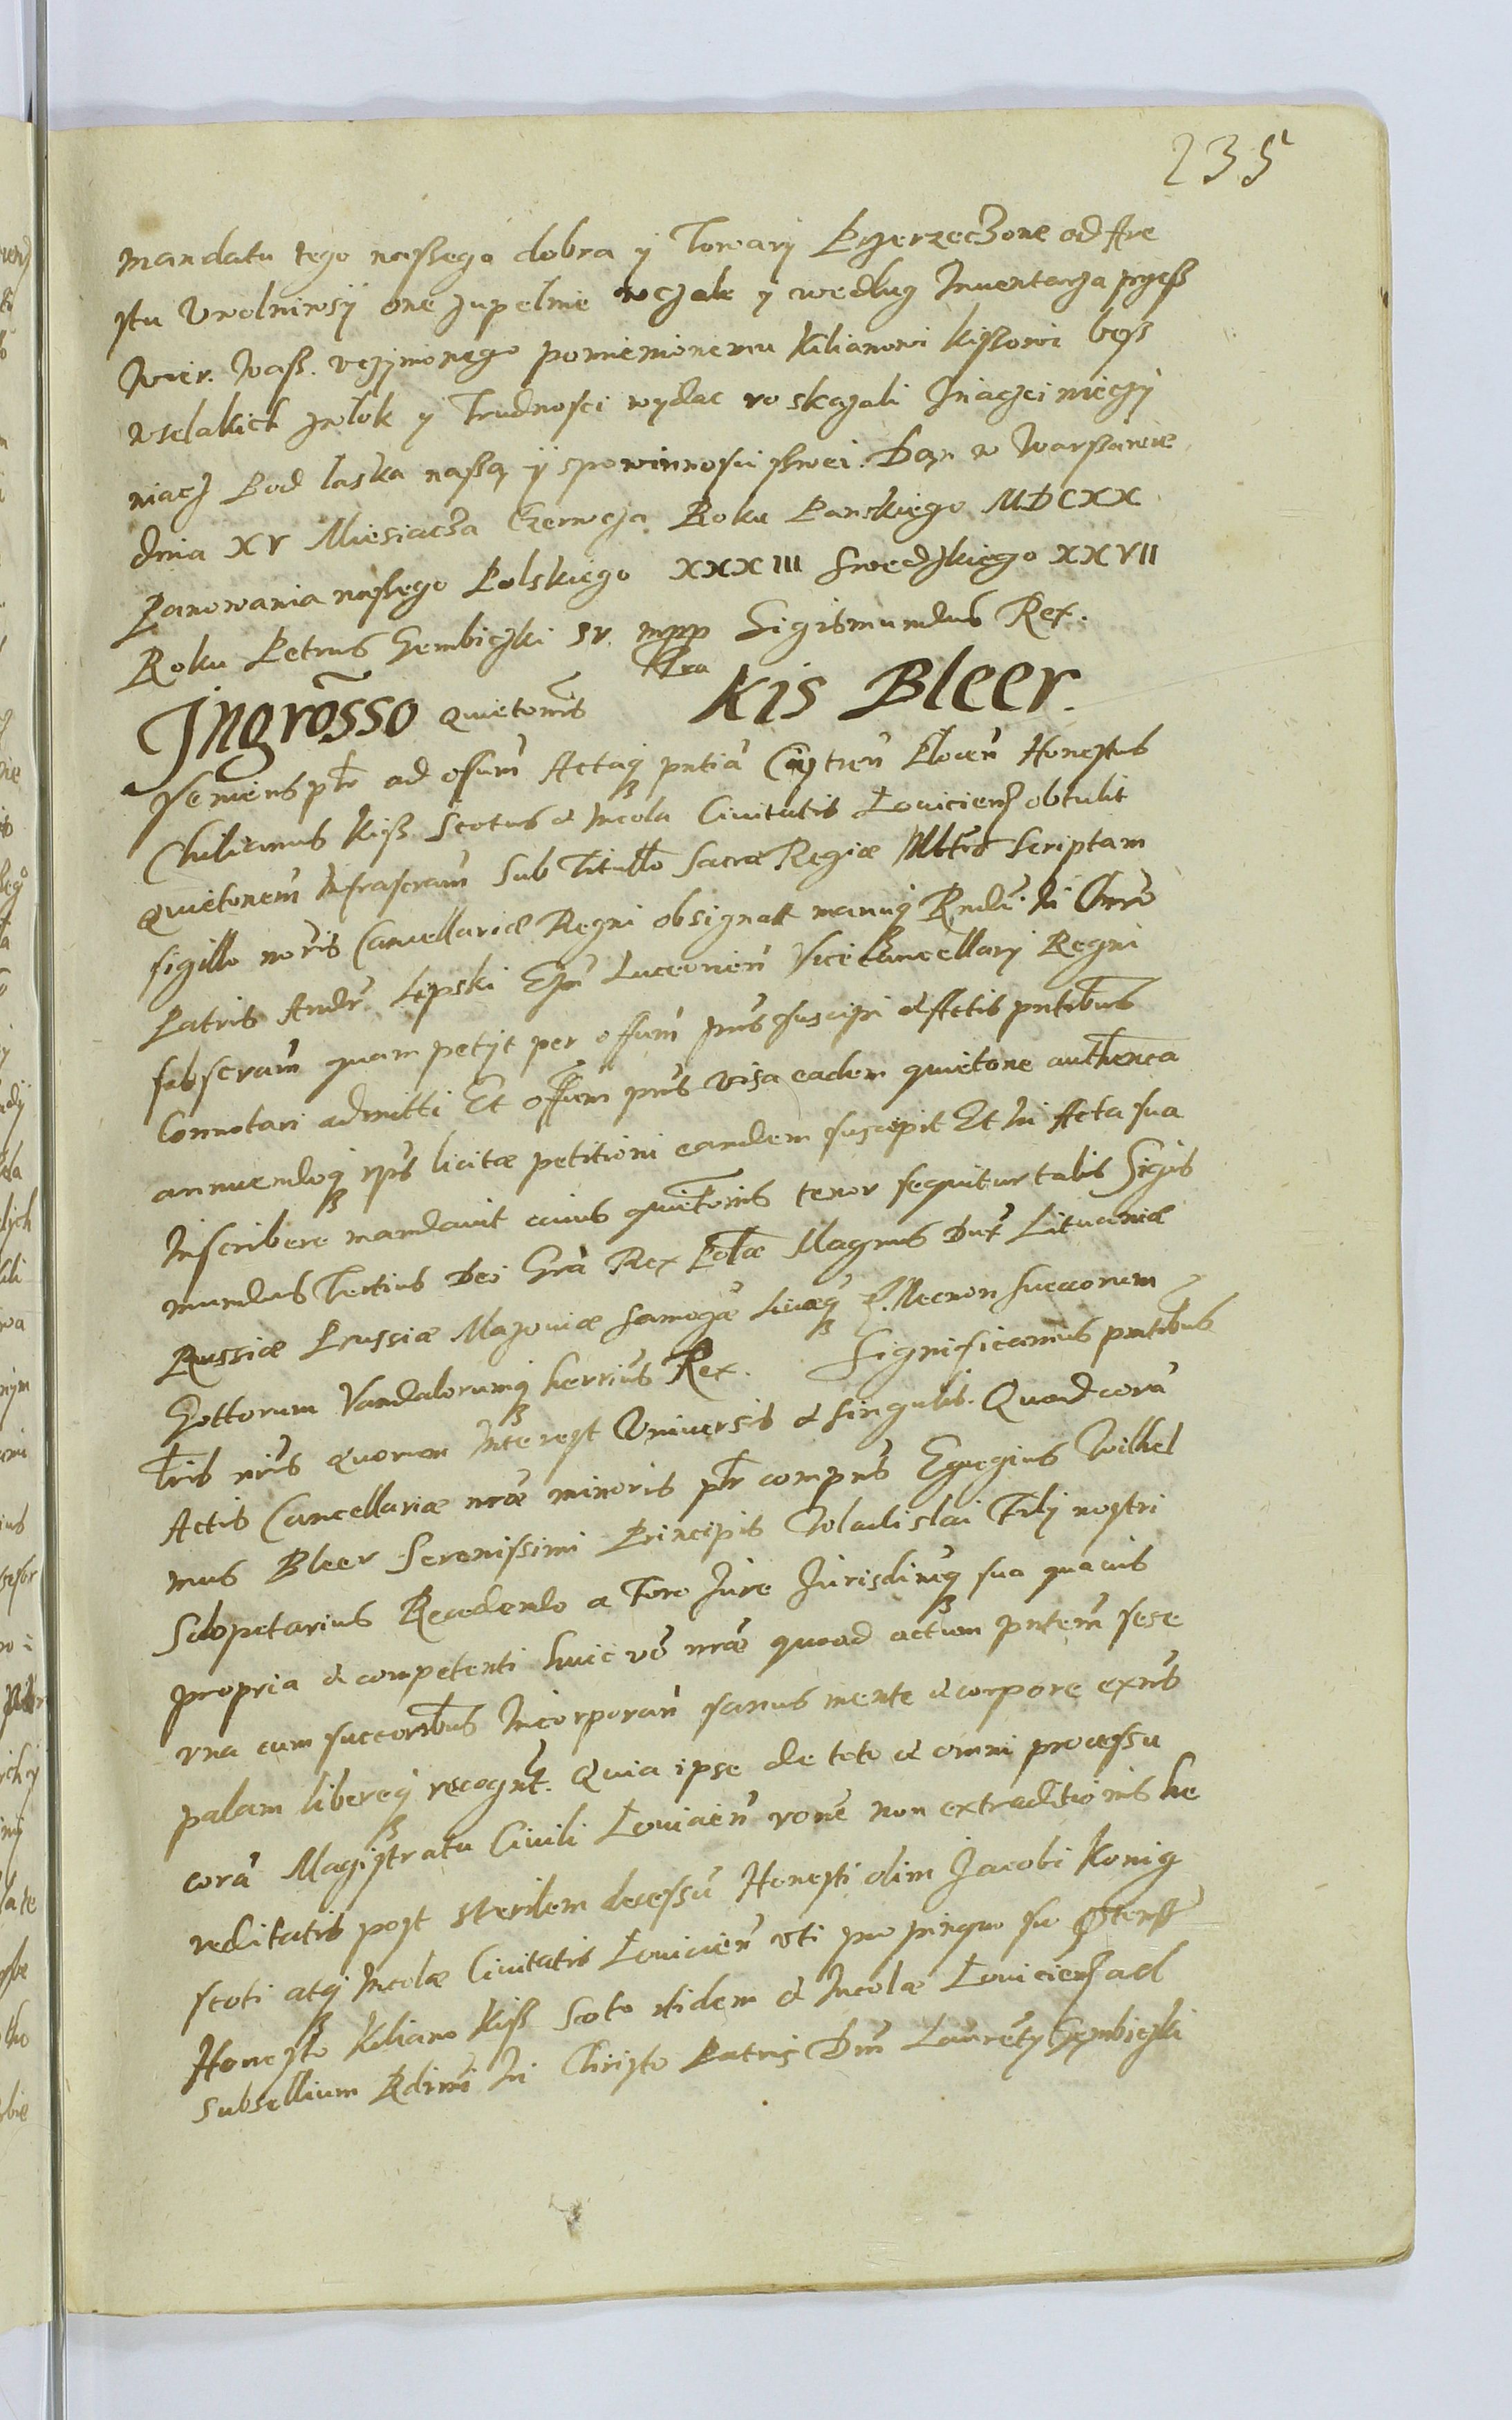 235
mandatu tego naßego dobra y Towary Przerzeczone od Are
stu Uwolniwsÿ one zupelnie wczale y według Inventarza przeß
Wier. Waß. uczynionego pomienionemu Kilianowi Kißowi beß
wselakich zwlok y Trudnosci wydac roskazali Inaczei nieczy
niacz Pod laska naßą ÿ spowinnosci swei. Dan w Warßawie
dnia XV Miesiacza Czerwcza Roku Panskiego MDCXX
Panowania naßego Polskiego XXXIII Swedzkiego XXVII
Roku Petrus Gembiczki sr. mpp Sigismundus Rex.
Ingrosso quietonis Kis Bleer.
Veniens ptr ad offum Actaq pntia Castren Plocen Honestus
Chilianus Kiß Scotus et Incola Civitatis Loviciens obtulit
quietonem Infrascram Sub Titullo Sacræ Regiæ Mttis Scriptam
sigillo noris Cancellariæ Regni obsignat manuq Rndi. In Chro
Patris Andr. Lipski Epi Luceorien Vicecancellary Regni
subscram quam petyt per offum pns suscipi et Actis pntibus
Connotari admitti Et offum pns visa eadem quietone authenca
annuendoq ips licitæ petitioni eandem suscepit Et In Acta sua
Inscribere mandavit cuius quietonis tenor sequitur talis Sigis
mundus Tertius Dei Gra Rex Polæ Magnus Dux Lituaniæ
Russiæ Prussiæ Mazoviæ Samogæ Livæq Necnon Suecorum
Gottorum Vandalorumq herrius Rex. Significamus pntibus
Lris nris quorum Interest Universis et singulis. Quod cora
Actis Cancellariæ nræ minoris ptr compns Egregius Wilhel
mus Bleer Serenissimi Principis Wladislai Fily nostri
Sclopetarius Recedendo a Foro Jure Jurisdineq sua quavis
propria et competenti huic vo nræ quoad actum pntem sese
una cum succoribus Incorporan sanus mente et corpore exns
palam libereq recognt. Quia ipse de toto et omni processu
cora Magistratu Civili Lovicien rone non extraditionis he
reditatis post sterilem decessu Honesti olim Jacobi Konig
scoti atq Incolæ Civitatis Lovicien uti propinquo su
Honesto Kiliano Kiß Scoto itidem et Incolæ Loviciens ad
Subsellium Rdimi In Christo Patris Dm Laurenty Gembiczki